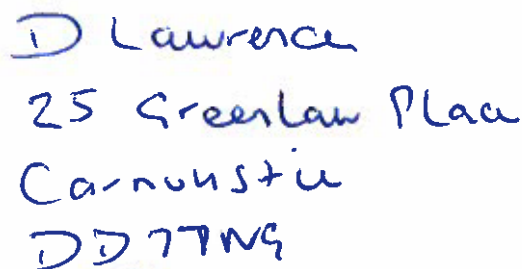 D Lawrence
25 Greenlaw Place
Carnoustie
DD7 7NG